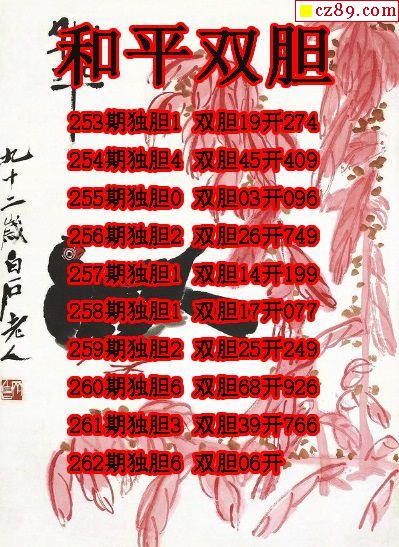 cz89.com
和平双胆
253期独胆1 双胆19开274
254期独胆4 双胆45开409
255期独胆0 双胆03开096
256期独胆2 双胆26开749
257期独胆1 双胆14开199
258期独胆1 双胆17开077
259期独胆2 双胆25开249
260期独胆6 双胆68开926
261期独胆3 双胆39开766
262期独胆6 双胆06开
九十二岁白石老人